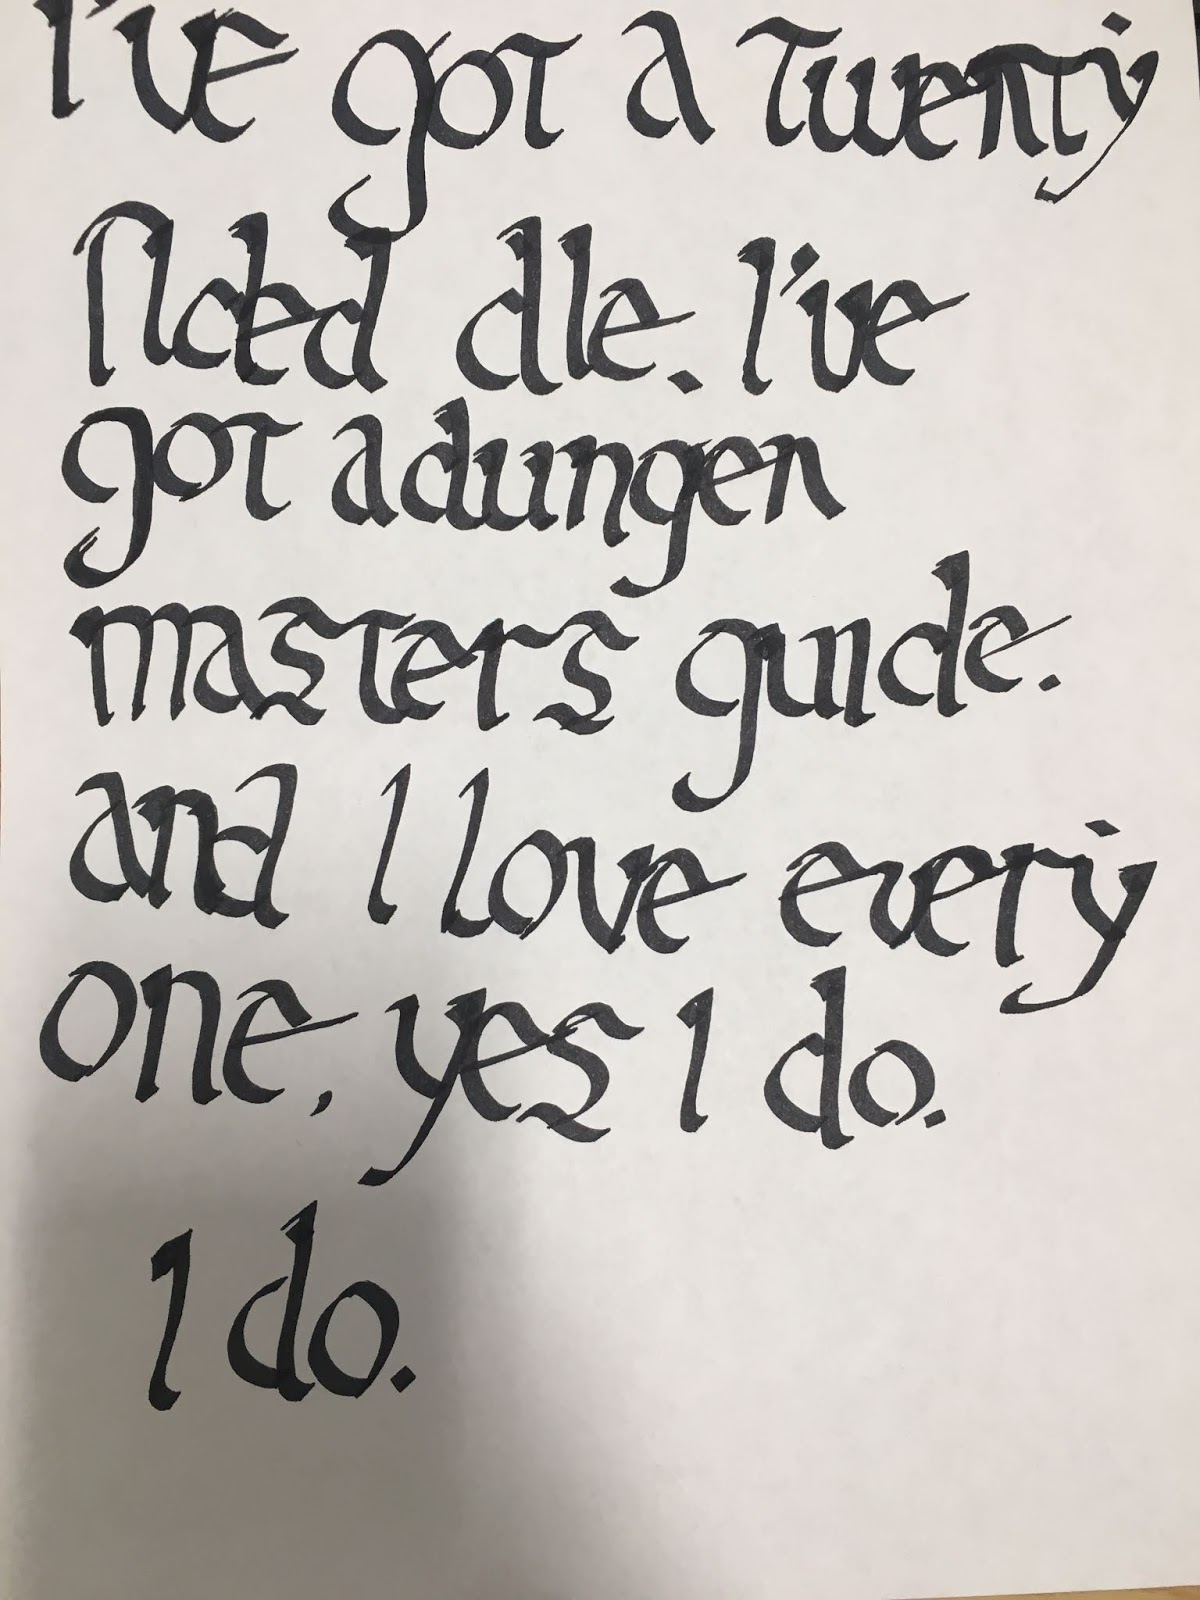 I've got a twenty
sided die. I've
got a dungen
masters guide.
and I love every
one, yes I do.
I do.